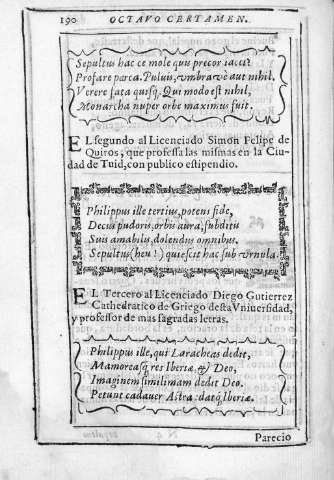 190 OCTAVO CERTAMEN.
Sepultus hac ce mole quis precor iacet?
Profare parca. Puluis, vmbra vè aut nihil.
Verere fata quisq; Qui modo est nihil,
Monarcha nuper orbe maximus fuit.
EL segundo al Licenciado Simon Felipe de
Quiros, que professa las mismas en la Ciu-
dad de Tuid, con publico estipendio.
Philippus ille tertius, potens fide,
Decus pudoris, orbis aura, subditis
Suis amabilis, dolendus omnibus,
Sepultus (heu!) quiescit hac sub vrnula.
EL Tercero al Licenciado Diego Gutierrez
Cathedratico de Griego desta Vniuersidad,
y professor de mas sagradas letras,
Philippus ille, qui Laracheas dedit,
Mamoreasq; res Iberiæ & Deo,
Imaginem simillimam dedit Deo.
Petunt cadauer Astra: datq; Iberiæ.
Parecio